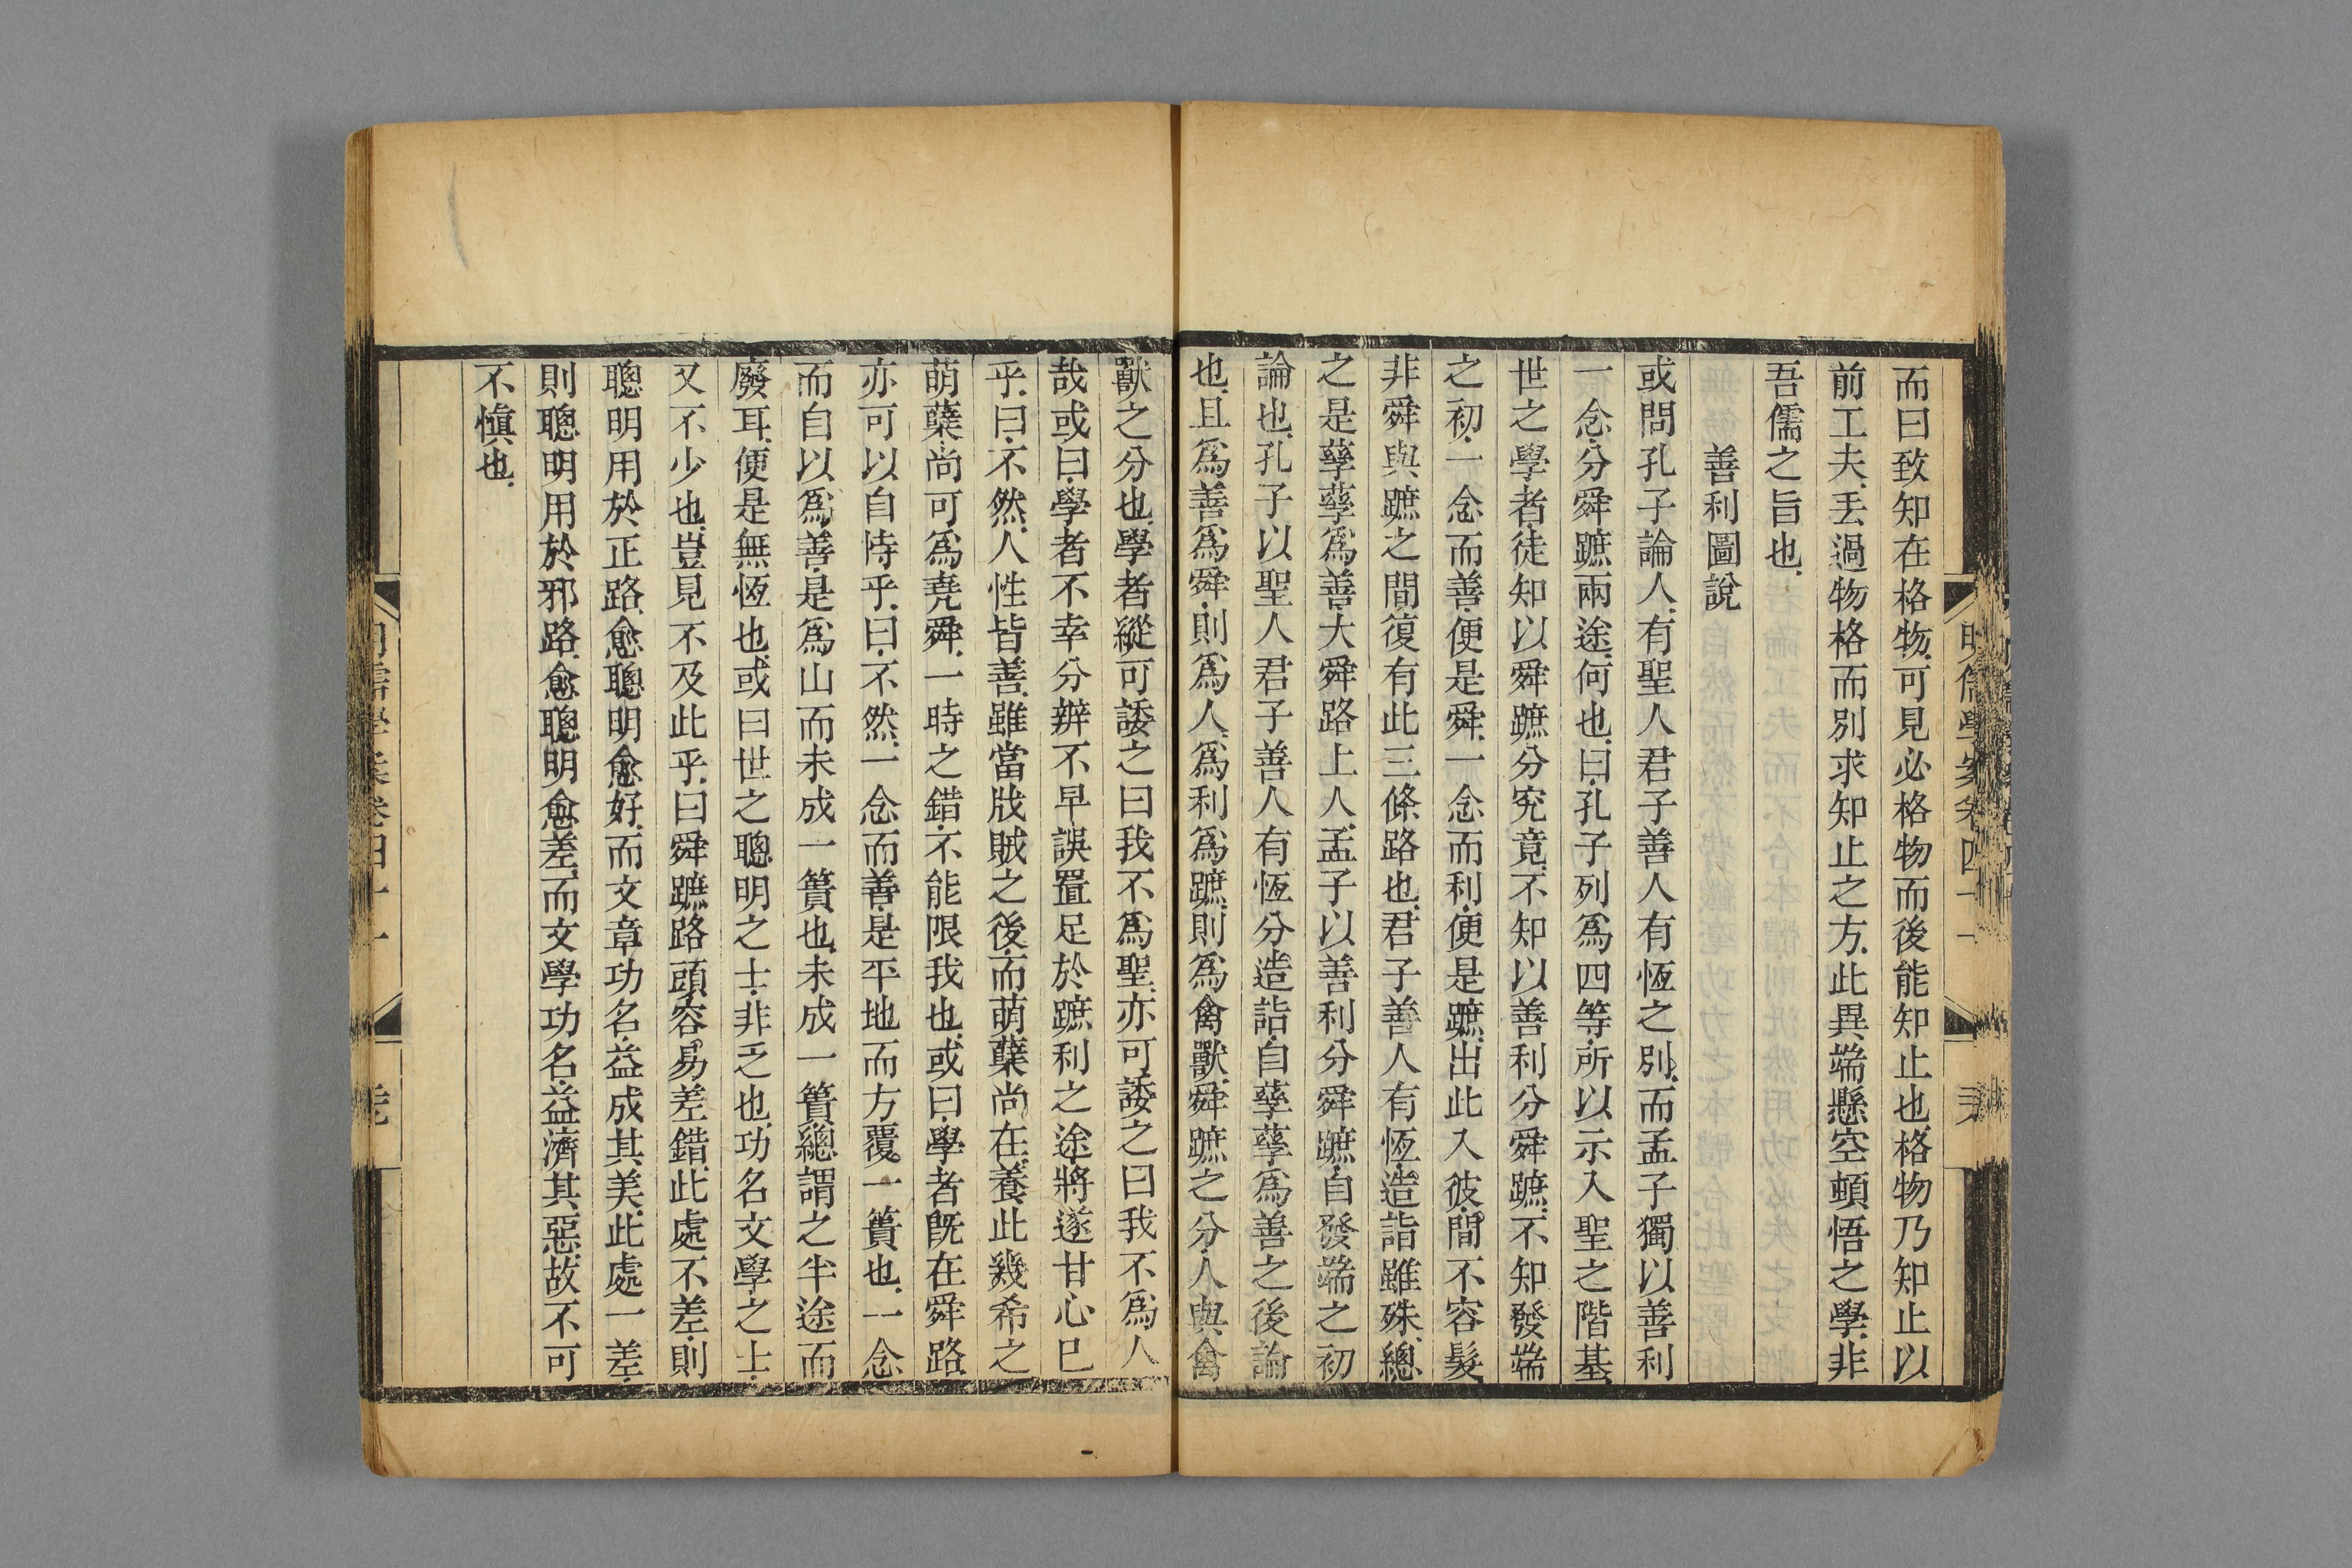 而曰致知在格物可見必格物而後能知止也格物乃知止以
前工夫丢過物格而別求知止之方此異端懸空頓悟之學非
吾儒之旨也
善利圖說
或問孔子論人有聖人君子善人有恆之別而孟子獨以善利
一念分舜蹠兩途何也曰孔子列爲四等所以示入聖之階基
世之學者徒知以舜蹠分究竟不知以善利分舜蹠不知發端
之初一念而善便是舜一念而利便是蹠出此入彼間不容髮
非舜與蹠之間復有此三條路也君子善人有恆造詣雖殊總
之是孳孳爲善大舜路上人孟子以善利分舜蹠自發端之初
論也孔子以聖人君子善人有恆分造詣自孳孳爲善之後論
也且爲善爲舜則爲人爲利爲蹠則爲禽獸舜蹠之分人與禽
獸之分也學者縱可諉之曰我不爲聖亦可諉之曰我不爲人
哉或曰學者不幸分辨不早誤置足於蹠利之途將遂甘心已
乎曰不然人性皆善雖當戕賊之後而萌蘖尚在養此幾希之
萌蘖尚可爲堯舜一時之錯不能限我也或曰學者既在舜路
亦可以自恃乎曰不然一念而善是平地而方覆一簣也一念
而自以爲善是爲山而未成一簣也未成一簣總謂之半途而
廢耳便是無恆也或曰世之聰明之士非乏也功名文學之士
又不少也豈見不及此乎曰舜蹠路頭容易差錯此處不差則
聰明用於正路愈聰明愈好而文章功名益成其美此處一差
則聰明用於邪路愈聰明愈差而文學功名益濟其惡故不可
不慎也
明儒學案卷四十一